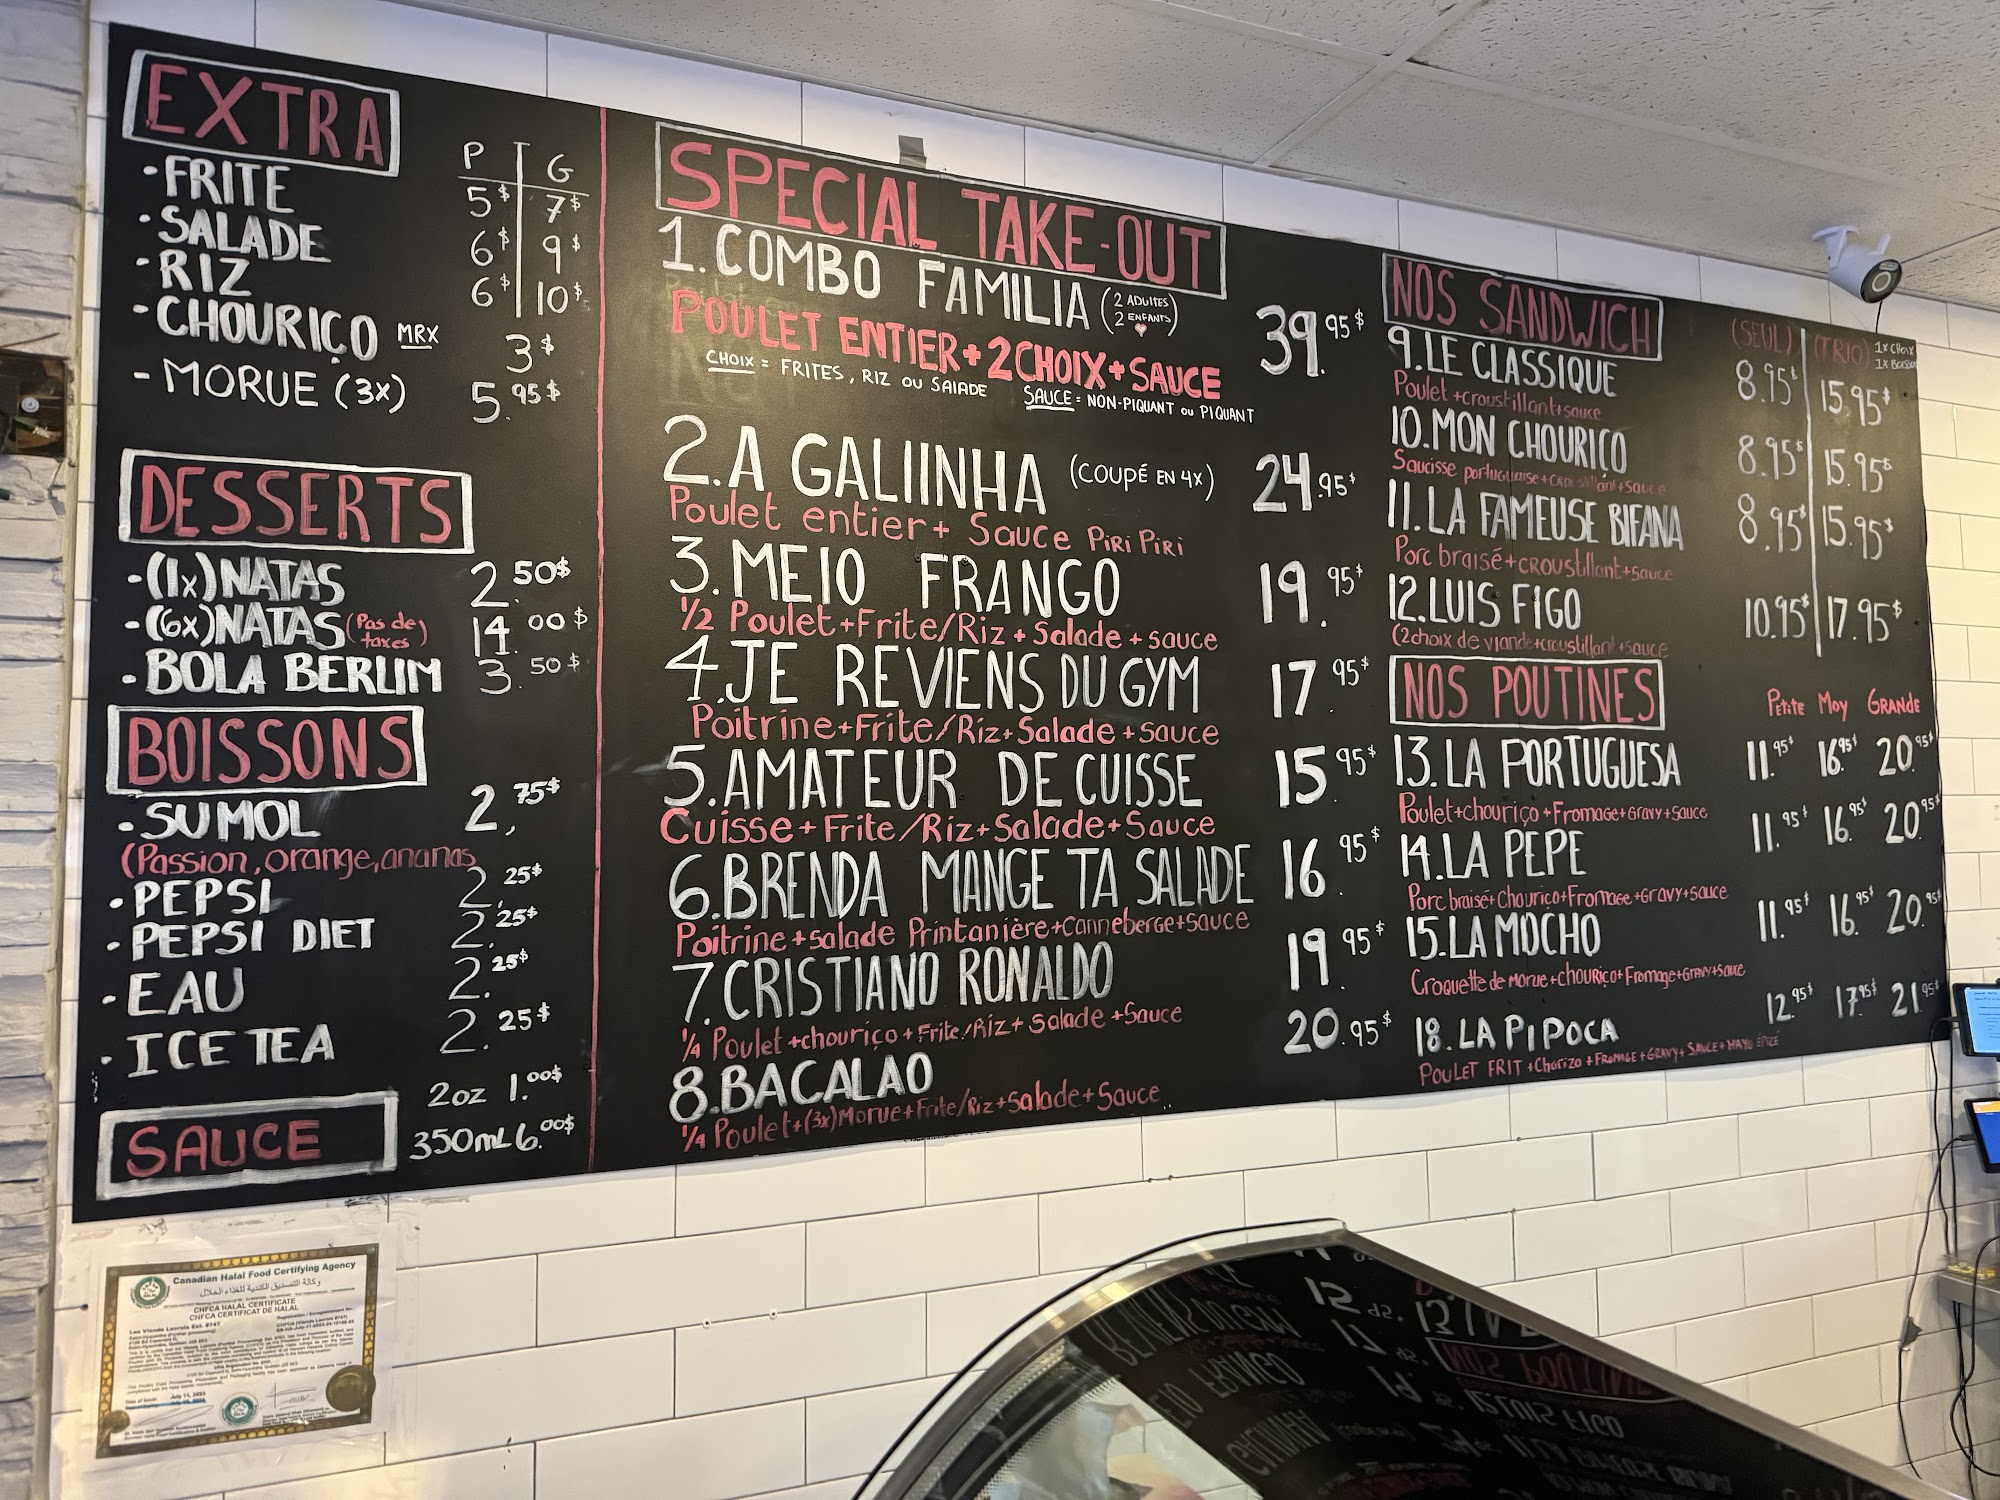 EXTRA
P G
-FRITE 5$ 7$
-SALADE 6$ 9$
-RIZ 6$ 10$
-CHOURIÇO MRX 3$
-MORUE (3x) 5.95$
DESSERTS
-(1x)NATAS 2.50$
-(6x)NATAS (Pas de taxes) 14.00$
-BOLA BERLIM 3.50$
BOISSONS
-SUMOL 2,75$
(Passion, orange, ananas
-PEPSI 2.25$
-PEPSI DIET 2.25$
-EAU 2.25$
-ICE TEA 2.25$
2oz 1.00$
SAUCE 350mL 6.00$
SPECIAL TAKE-OUT
1.COMBO FAMILIA (2 ADULTES 2 ENFANTS) 39.95$
POULET ENTIER+2CHOIX+SAUCE
CHOIX = FRITES, RIZ OU SALADE SAUCE = NON-PIQUANT OU PIQUANT
2.A GALIINHA (COUPÉ EN 4X) 24.95$
Poulet entier+ Sauce PiRi PiRi
3.MEIO FRANGO 19.95$
1/2 Poulet+Frite/Riz+Salade+sauce
4.JE REVIENS DU GYM 17.95$
Poitrine+Frite/Riz+Salade+sauce
5.AMATEUR DE CUISSE 15.95$
Cuisse+Frite/Riz+Salade+Sauce
6.BRENDA MANGE TA SALADE 16.95$
Poitrine+salade Printanière+Canneberge+sauce
7.CRISTIANO RONALDO 19.95$
1/4 Poulet+chouriço+Frite/Riz+Salade+Sauce
8.BACALAO 20.95$
1/4 Poulet+(3x)Morue+Frite/Riz+Salade+Sauce
NOS SANDWICH (SEUL) (TRIO) 1x CHOIX 1x BOISSON
9.LE CLASSIQUE 8.95$ 15.95$
Poulet+croustillant+sauce
10.MON CHOURIÇO 8.95$ 15.95$
Saucisse portugaise+croustillant+sauce
11.LA FAMEUSE BIFANA 8.95$ 15.95$
Porc braisé+croustillant+sauce
12.LUIS FIGO 10.95$ 17.95$
(2choix de viande+croustillant+sauce
NOS POUTINES Petite Moy GRANDE
13.LA PORTUGUESA 11.95$ 16.95$ 20.95$
Poulet+chouriço+Fromage+Gravy+Sauce
14.LA PEPE 11.95$ 16.95$ 20.95$
Porc braisé+chouriço+Fromage+Gravy+sauce
15.LA MOCHO 11.95$ 16.95$ 20.95$
Croquette de morue+chouriço+Fromage+Gravy+Sauce
18.LA PIPOCA 12.95$ 17.95$ 21.95$
POULET FRIT+Chorizo+FROMAGE+GRAVY+SAUCE+MAYO ÉPICÉ
Canadian Halal Food Certifying Agency
وكالة التصديق الكندية للغذاء الحلال
CHFCA HALAL CERTIFICATE
CHFCA CERTIFICAT DE HALAL
July 11, 2023